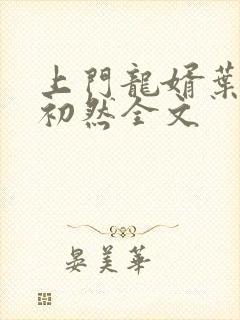 上門龍婿葉
初然全文
晏美華